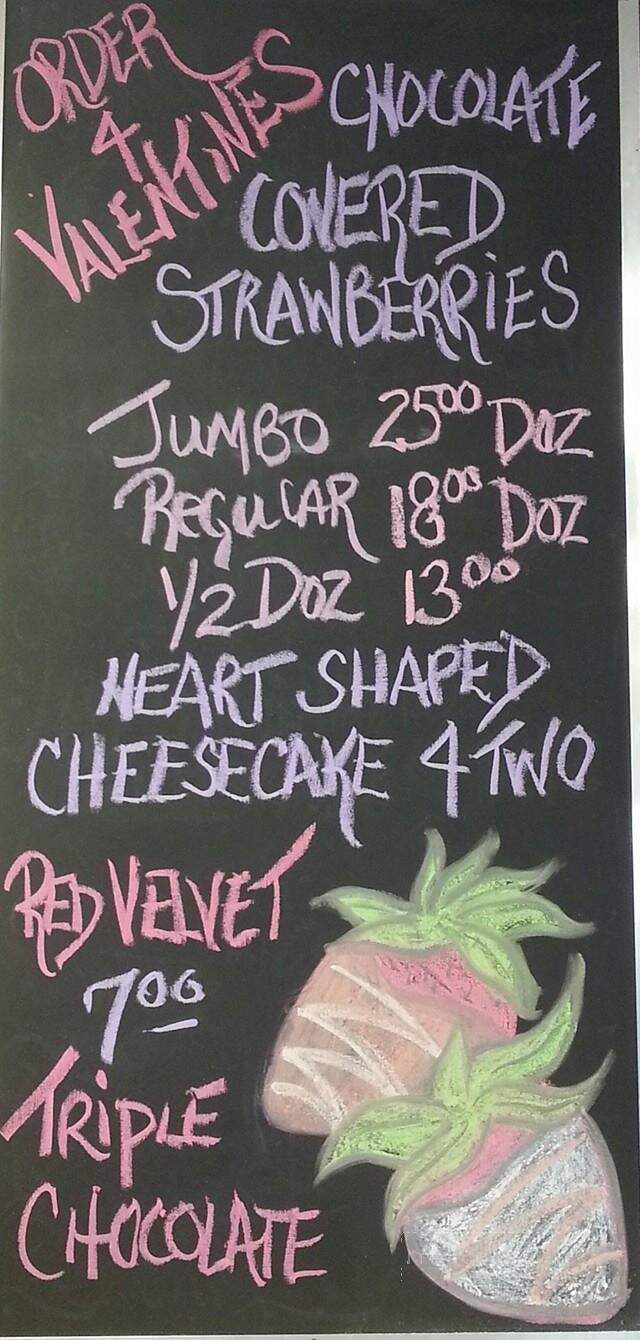 ORDER
4
VALENTINES
CHOCOLATE
COVERED
STRAWBERRiES
JUMBO 25⁰⁰ DOZ
REGULAR 18⁰⁰ DOZ
1/2 DOZ 13⁰⁰
HEART SHAPED
CHEESECAKE 4 TWO
RED VELVET
7⁰⁰
TRiPLE
CHOCOLATE